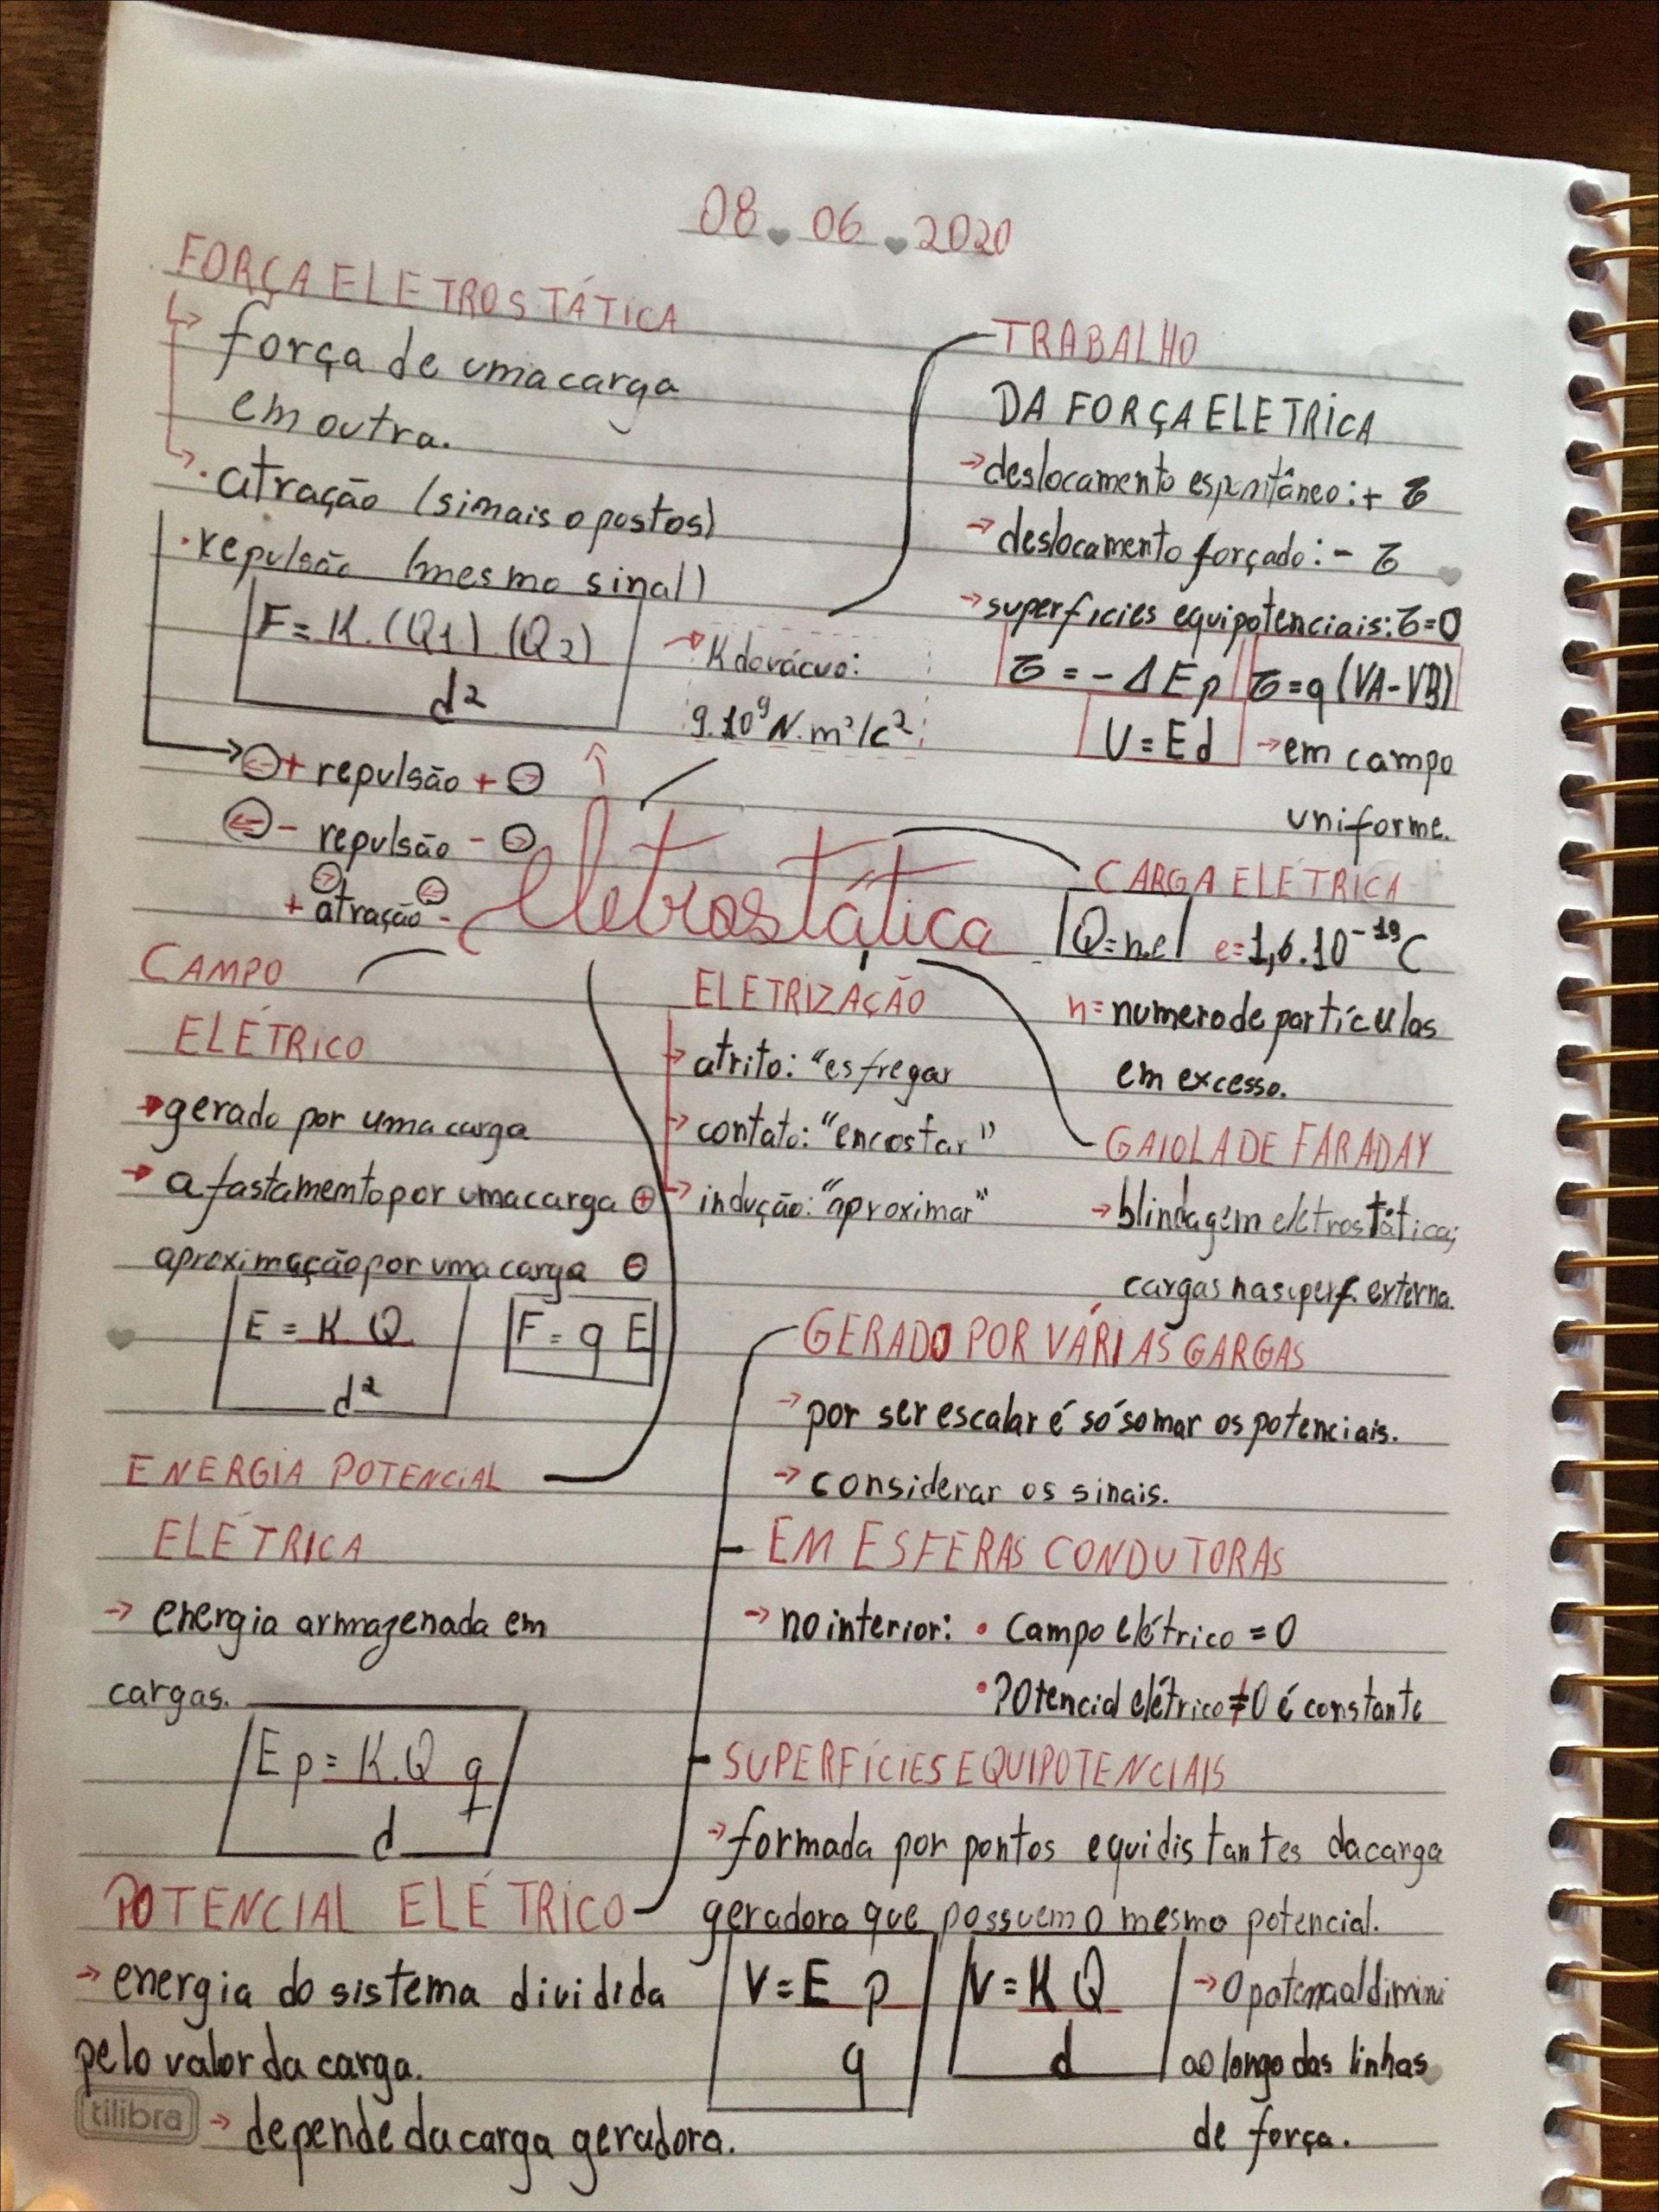 08.06.2020
FORÇA ELETROSTÁTICA
↳ força de uma carga
em outra.
↳ • atração (sinais opostos)
• repulsão (mesmo sinal)
F = K.(Q1).(Q2)
d²
→ K do vácuo:
9.10⁹ N.m²/c²
⊖+ repulsão + ⊖
⊖- repulsão - ⊖
+ atração -
TRABALHO
DA FORÇA ELETRICA
→ deslocamento espontâneo: + T
→ deslocamento forçado: - T
→ superfícies equipotenciais: T=0
T = - Δ Ep
T = q (VA-VB)
U = Ed → em campo
uniforme.
eletrostática
CARGA ELÉTRICA
Q=n.e e=1,6.10⁻¹⁹C
n= numero de partículas
em excesso.
CAMPO
ELÉTRICO
→ gerado por uma carga
→ afastamento por uma carga ⊕
aproximação por uma carga ⊖
E = K Q
d²
F = q E
ELETRIZAÇÃO
→ atrito: "esfregar
→ contato: "encostar"
→ indução: "aproximar"
GAIOLA DE FARADAY
→ blindagem eletrostática;
cargas na superf. externa.
ENERGIA POTENCIAL
ELÉTRICA
→ energia armazenada em
cargas.
Ep = K.Q q
d
GERADO POR VÁRIAS GARGAS
→ por ser escalar é só somar os potenciais.
→ considerar os sinais.
EM ESFERAS CONDUTORAS
→ no interior: • Campo elétrico = 0
• Potencial elétrico ≠ 0 é constante
SUPERFÍCIES EQUIPOTENCIAIS
→ formada por pontos equidistantes da carga
geradora que possuem o mesmo potencial.
POTENCIAL ELÉTRICO
→ energia do sistema dividida
pelo valor da carga.
→ depende da carga geradora.
V = E p
q
V = K Q
d
→ O potencial diminui
ao longo das linhas
de força.
tilibra